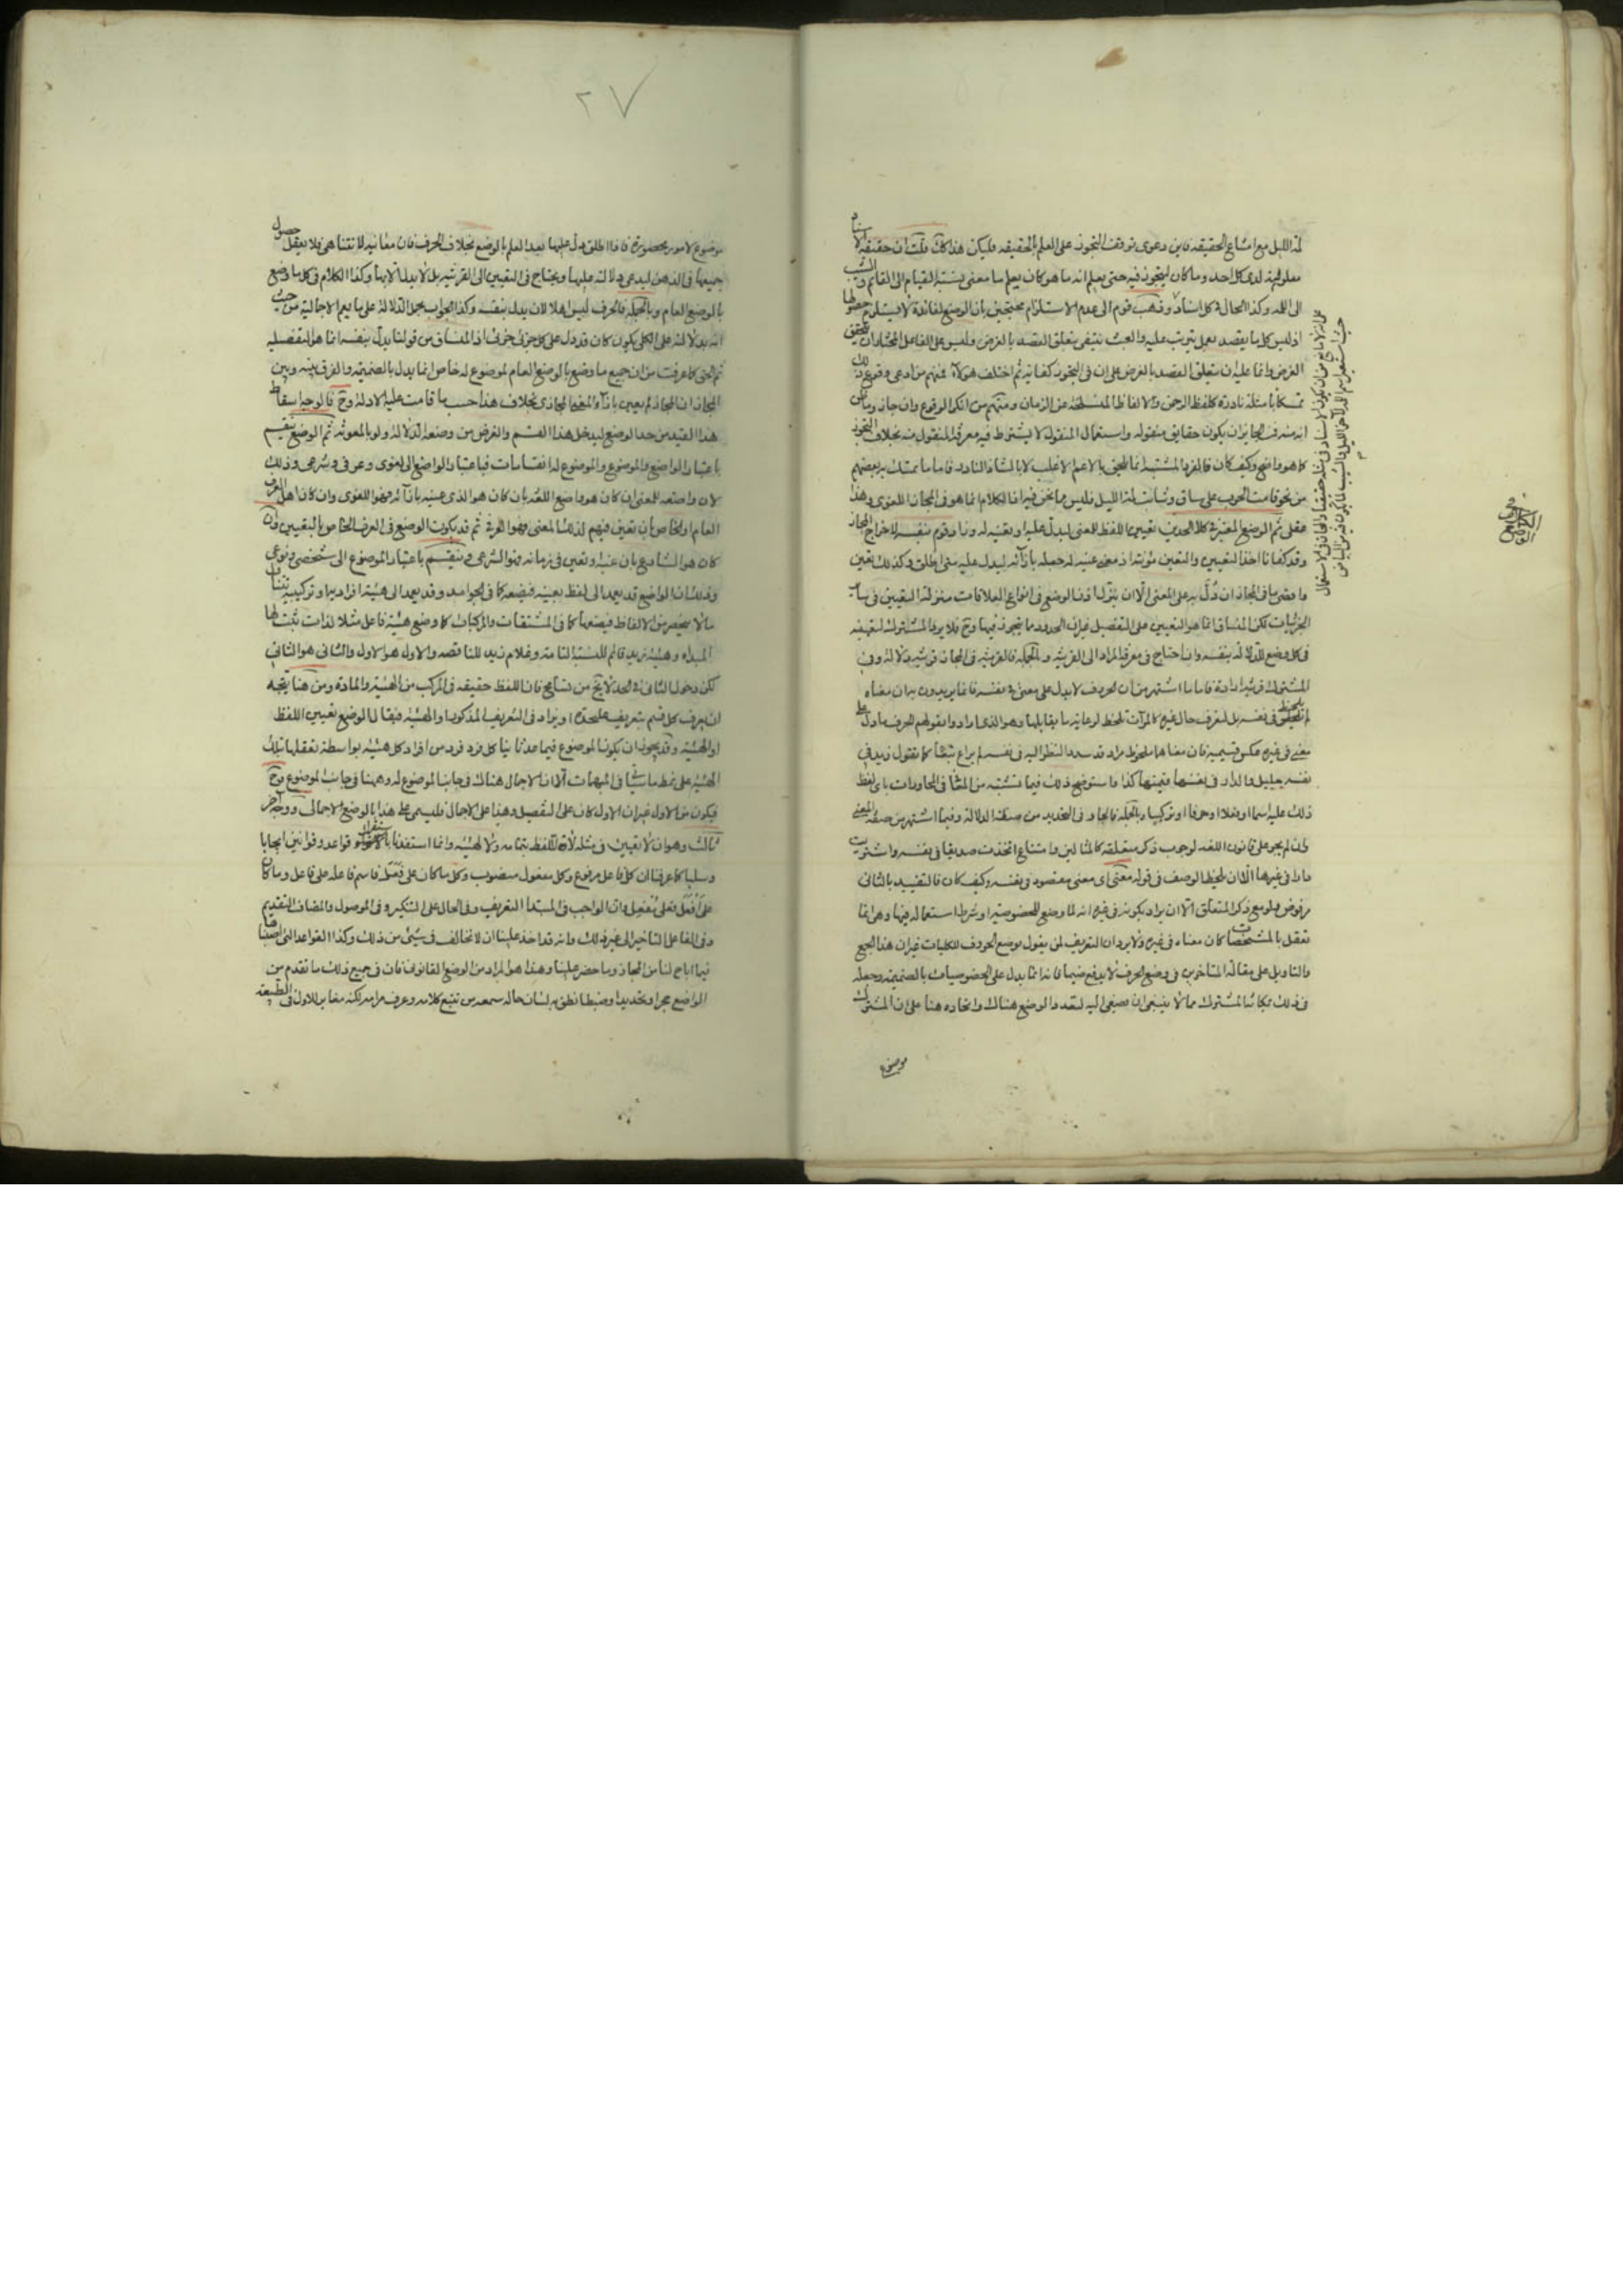 لمة الليل مع امتناع الحقيقه فاين دعوى توقف التجوز على العلم بالحقيقه فليكن هذا كك قلت ان حقيقة الاسناد
معلومة لدى كل احد وما كان ليتجوز فيه حتى يعلم انه ما هو كان يعلم ما معنى نسبة القيام الى القائم والشيب
الى اللمه وكذا الحال في كل اسناد وذهب قوم الى عدم الاستلزام محتجين بان الوضع لفائدة لا يستلزم حصولها
اذ ليس كل ما يقصد بعمل يترتب عليه والعبث ينتفى بتعلق القصد بالغرض وليس على الفاعل المختار ان يتحقق
الغرض وانما عليه ان يتعلق القصد بالغرض على ان في التجوز كفاية ثم اختلف هؤلاء فمنهم من ادعى وقوع ذلك
تمسكا بامثلة نادرة كلفظ الرحمن والالفاظ المنسلخة عن الزمان ومنهم من انكر الوقوع وان جاز وما
انه من الجايز ان يكون حقايق منقوله واستعمال المنقول لا يشترط فيه معرفة المنقول منه بخلاف التجوز
كما هو واضح وكيف كان فالفرد المشتبه انما يلحق بالاعم الاغلب لا بالشاذ النادر فاما ما تمسك به بعضهم
من نحو قامت الحرب على ساق وشابت لمة الليل فليس مما نحن فيه اذ الكلام انما هو في المجاز اللغوي وهذا
عقلي ثم الوضع المعتبر في كلا الحدين تعيين اللفظ للمعنى ليدل عليه او تعينه له وزاد قوم بنفسه لاخراج المجاز
وقد كفانا اخذ التعيين والتعين مؤنته اذ معنى عينه له جعله بازائه ليدل عليه متى اطلق وكذلك تعين
واقصى ما في المجاز ان دُلّ به على المعنى الا ان ينزل اذن الواضع في انواع العلاقات منزلة التعيين في ساير
الجزئيات لكن المنساق انما هو التعيين على التفصيل غير ان الحدود مما يتجوز فيها وح فلا يرد المشترك لتعينه
في كل وضع للدلالة بنفسه وان احتاج في معرفة المراد الى القرينه وبالجمله فالقرينه في المجاز قرينة دلالة وفي
المشترك قرينة ارادة فاما ما اشتهر من ان الحرف لا يدل على معنى في نفسه فانما يريدون به ان معناه
لم يلحظ في نفسه بل لتعرف حال غيره كالمرآت تلحظ لرعاية ما يقابلها وهو الذي ارادوا بقولهم الحرف ما دل على
معنى في غيره عكس قسيميه فان معناهما ملحوظ مراد قد سدد النظر اليه في نفسه لم يراع تبعا كما تقول زيد في
نفسه جليل والدار في نفسها قيمتها كذا واستوضح ذلك فيما تستبينه من المثنا في المحاورات باي لفظ
ذلك عليه اسما او فعلا او حرفا او تركيبا وبالجمله فالجار في التحديد من صلة الدلالة وفيما اشتهر من صفة المعنى
وان لم يجر على قانون اللغه لوجوب ذكر متعلقه كالمثالين وامتناع اتخذت صديقا في نفسه واشتريت
دارا في غيرها الا ان يلحظ الوصف في قوله معنى اى معنى مقصود في نفسه وكيف كان فالتقييد بالثاني
مرفوض ولو مع ذكر المتعلق الا ان يراد بكونه في غيره انه لما وضع للخصوصيه او شرط استعماله فيها وهي انما
تعقل بالمشخصات كان معناه في غيره ولا يرد ان التعريف لمن يقول بوضع الحروف للكليات غير ان هذا الجمع
والتاويل على مقالة المتأخرين في وضع الحرف لا يدفع ضيما فانه انما يدل على الخصوصيات بالضميمة وجعله
في ذلك بمكانة المشترك مما لا ينبغي ان يصغى اليه لتعدد الوضع هناك واتحاده هنا على ان المشترك
موضوع
موضوع لامور محصورة فاذا اطلق دل عليها بعد العلم بالوضع بخلاف الحرف فان معانيه لا تتناهى فلا يعقل حصول
جميعها في الذهن ليدعى دلالته عليها ويحتاج في التعيين الى القرينه بل لا يدل الا بها وكذا الكلام في كل ما وضع
بالوضع العام وبالجمله فالحرف ليس اهلا لان يدل بنفسه وكذا الجواب بجعل الدلالة على ما يعم الاجالية من حيث
انه بدلالته على الكلي يكون كان قد دل على كل جزئي جزئي اذ المنساق من قولنا يدل بنفسه انما هو التفصيليه
ثم انى كما عرفت من ان جميع ما وضع بالوضع العام لموضوع له خاص انما يدل بالضميمه والفرق بينه وبين
المجاز ان المجاز لم يعين بازاء المعنى المجازى بخلاف هذا حسب ما قامت عليه الادلة وح فالوجه اسقاط
هذا القيد من حد الوضع ليدخل هذا القسم والغرض من وضعه الدلالة ولو بالمعونه ثم الوضع ينقسم
باعتبار الواضع والموضوع والموضوع له انقسامات فباعتبار الواضع الى لغوى وعرفى وشرعى وذلك
لان واضعه للمعنى ان كان هو واضع اللغه بان كان هو الذى عينه بازائه فهو اللغوى وان كان اهل العرف
العام او الخاص بان تعين فيهم لذلك المعنى فهو العرفى ثم قد يكون الوضع في العرف الخاص بالتعيين وان
كان هو الشارع بان عينه او تعين في زمانه فهو الشرعى وينقسم باعتبار الموضوع الى شخصى ونوعى
وذلك ان الواضع قد يعمد الى لفظ بعينه فيضعه كما في الجوامد وقد يعمد الى هيئة افرادية او تركيبية تنتاب
ما لا ينحصر من الالفاظ فيضعها كما في المشتقات والمركبات كما وضع هيئة فاعل مثلا لذات ثبت لها
المبداء وهيئة زيد قائم للنسبة التامة وغلام زيد للناقصه والاول هو الاول والثاني هو الثاني
لكن دخول الثاني في الحد لا يخ من تسامح فان اللفظ حقيقه في المركب من الهيئة والمادة ومن هنا يتجه
ان يعرف كل قسم بتعريف على حدة او يزاد في التعريف المذكور او الهيئة فيقال الوضع تعيين اللفظ
او الهيئة وقد يجوز ان يكون الموضوع فيما عدنا نيا كل فرد فرد من افراد كل هيئة بواسطة تعقلها بتلك
الهيئة على نمط ما سيأتى في المبهمات الا ان الاجمال هناك في جانب الموضوع له وههنا في جانب الموضوع وح
فيكون من الاول غير ان الاول كان على التفصيل وهذا على الاجمال فليسم هذا بالوضع الاجمالى ووجه آخر
ثالث وهو ان لا تعيين في مثله لا للفظ بتمامه ولا لهيئة وانما استفدنا بالاستقراء قواعد وقوانين ايجابا
وسلبا كما عرفنا ان كل فاعل مرفوع وكل مفعول منصوب وكل ما كان على فَعَلَ فاسم فاعله على فاعل وما كان
على اَفْعَلَ فعلى مُفْعِل وان الواجب في المبتدأ التعريف وفي الحال على التنكير وفي الموصول والمضاف التقديم
وفي الفاعل التاخير الى غير ذلك وانه قد اخذ علينا ان لا نخالف في شيئ من ذلك وكذا القواعد التى اصبناها
فيما اباح لنا من المجاز وما حضر علينا وهذا هو المراد من الوضع القانونى فان في جميع ذلك ما تقدم من
الواضع حجرا وتحديدا وضبطا نطق به لسان حاله سمعه من تتبع كلامه وعرف مرامه لكنه مغاير للاول في الطبيعة